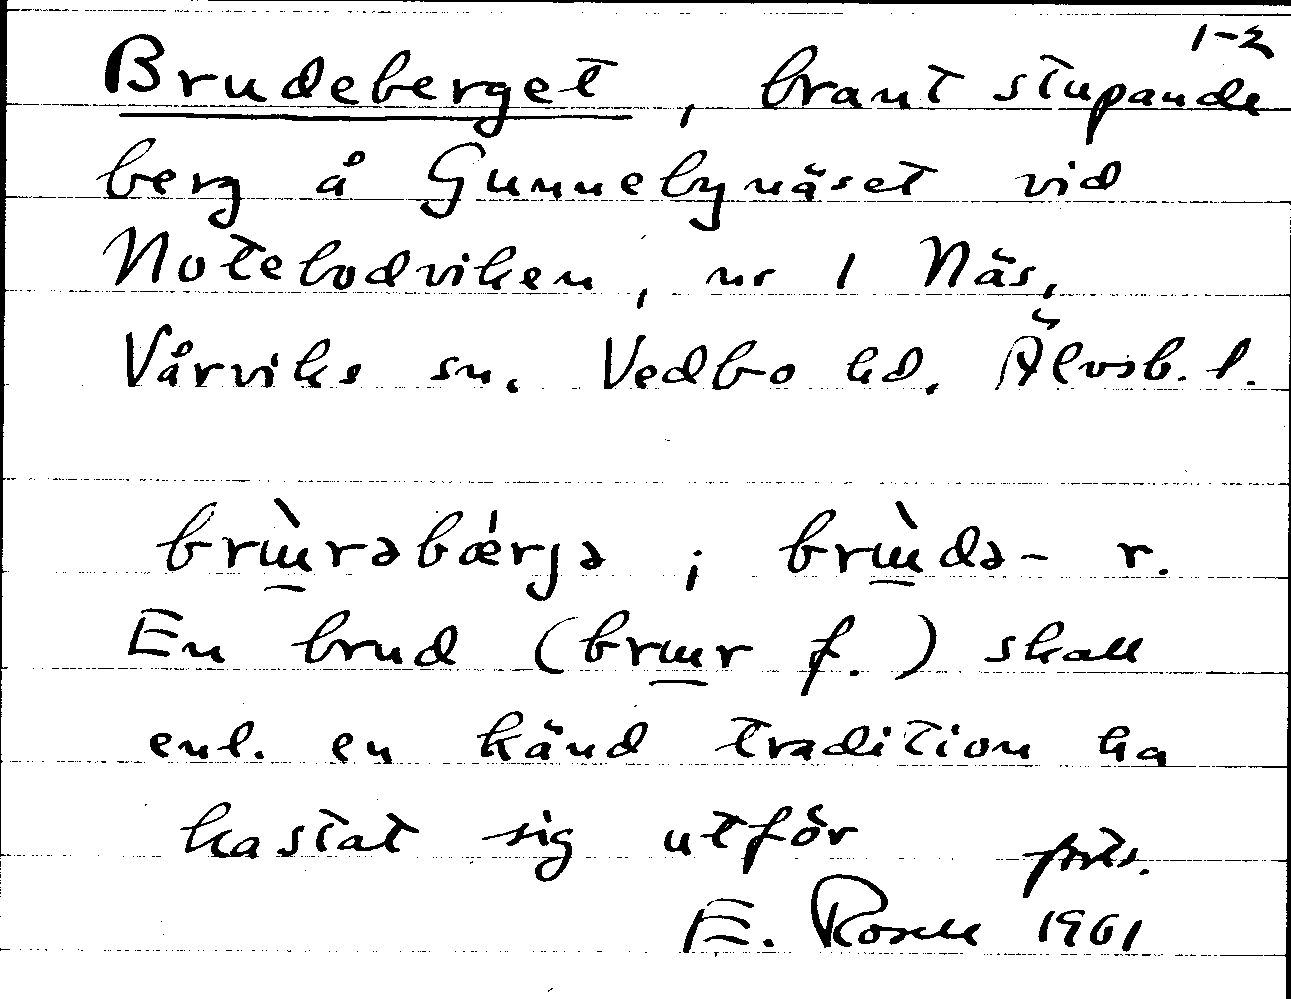 1-2
Brudeberget, brant stupande
berg å Gunnebynäset vid
Notebodviken, nr 1 Näs,
Vårviks sn. Vedbo hd. Älvsb. l.
brɯ̱̀rəbǽrjə ; brɯ̱̀də- r.
En brud (brɯ̱r f.) skall
enl. en känd tradition ha
kastat sig utför forts.
E. Rosell 1961